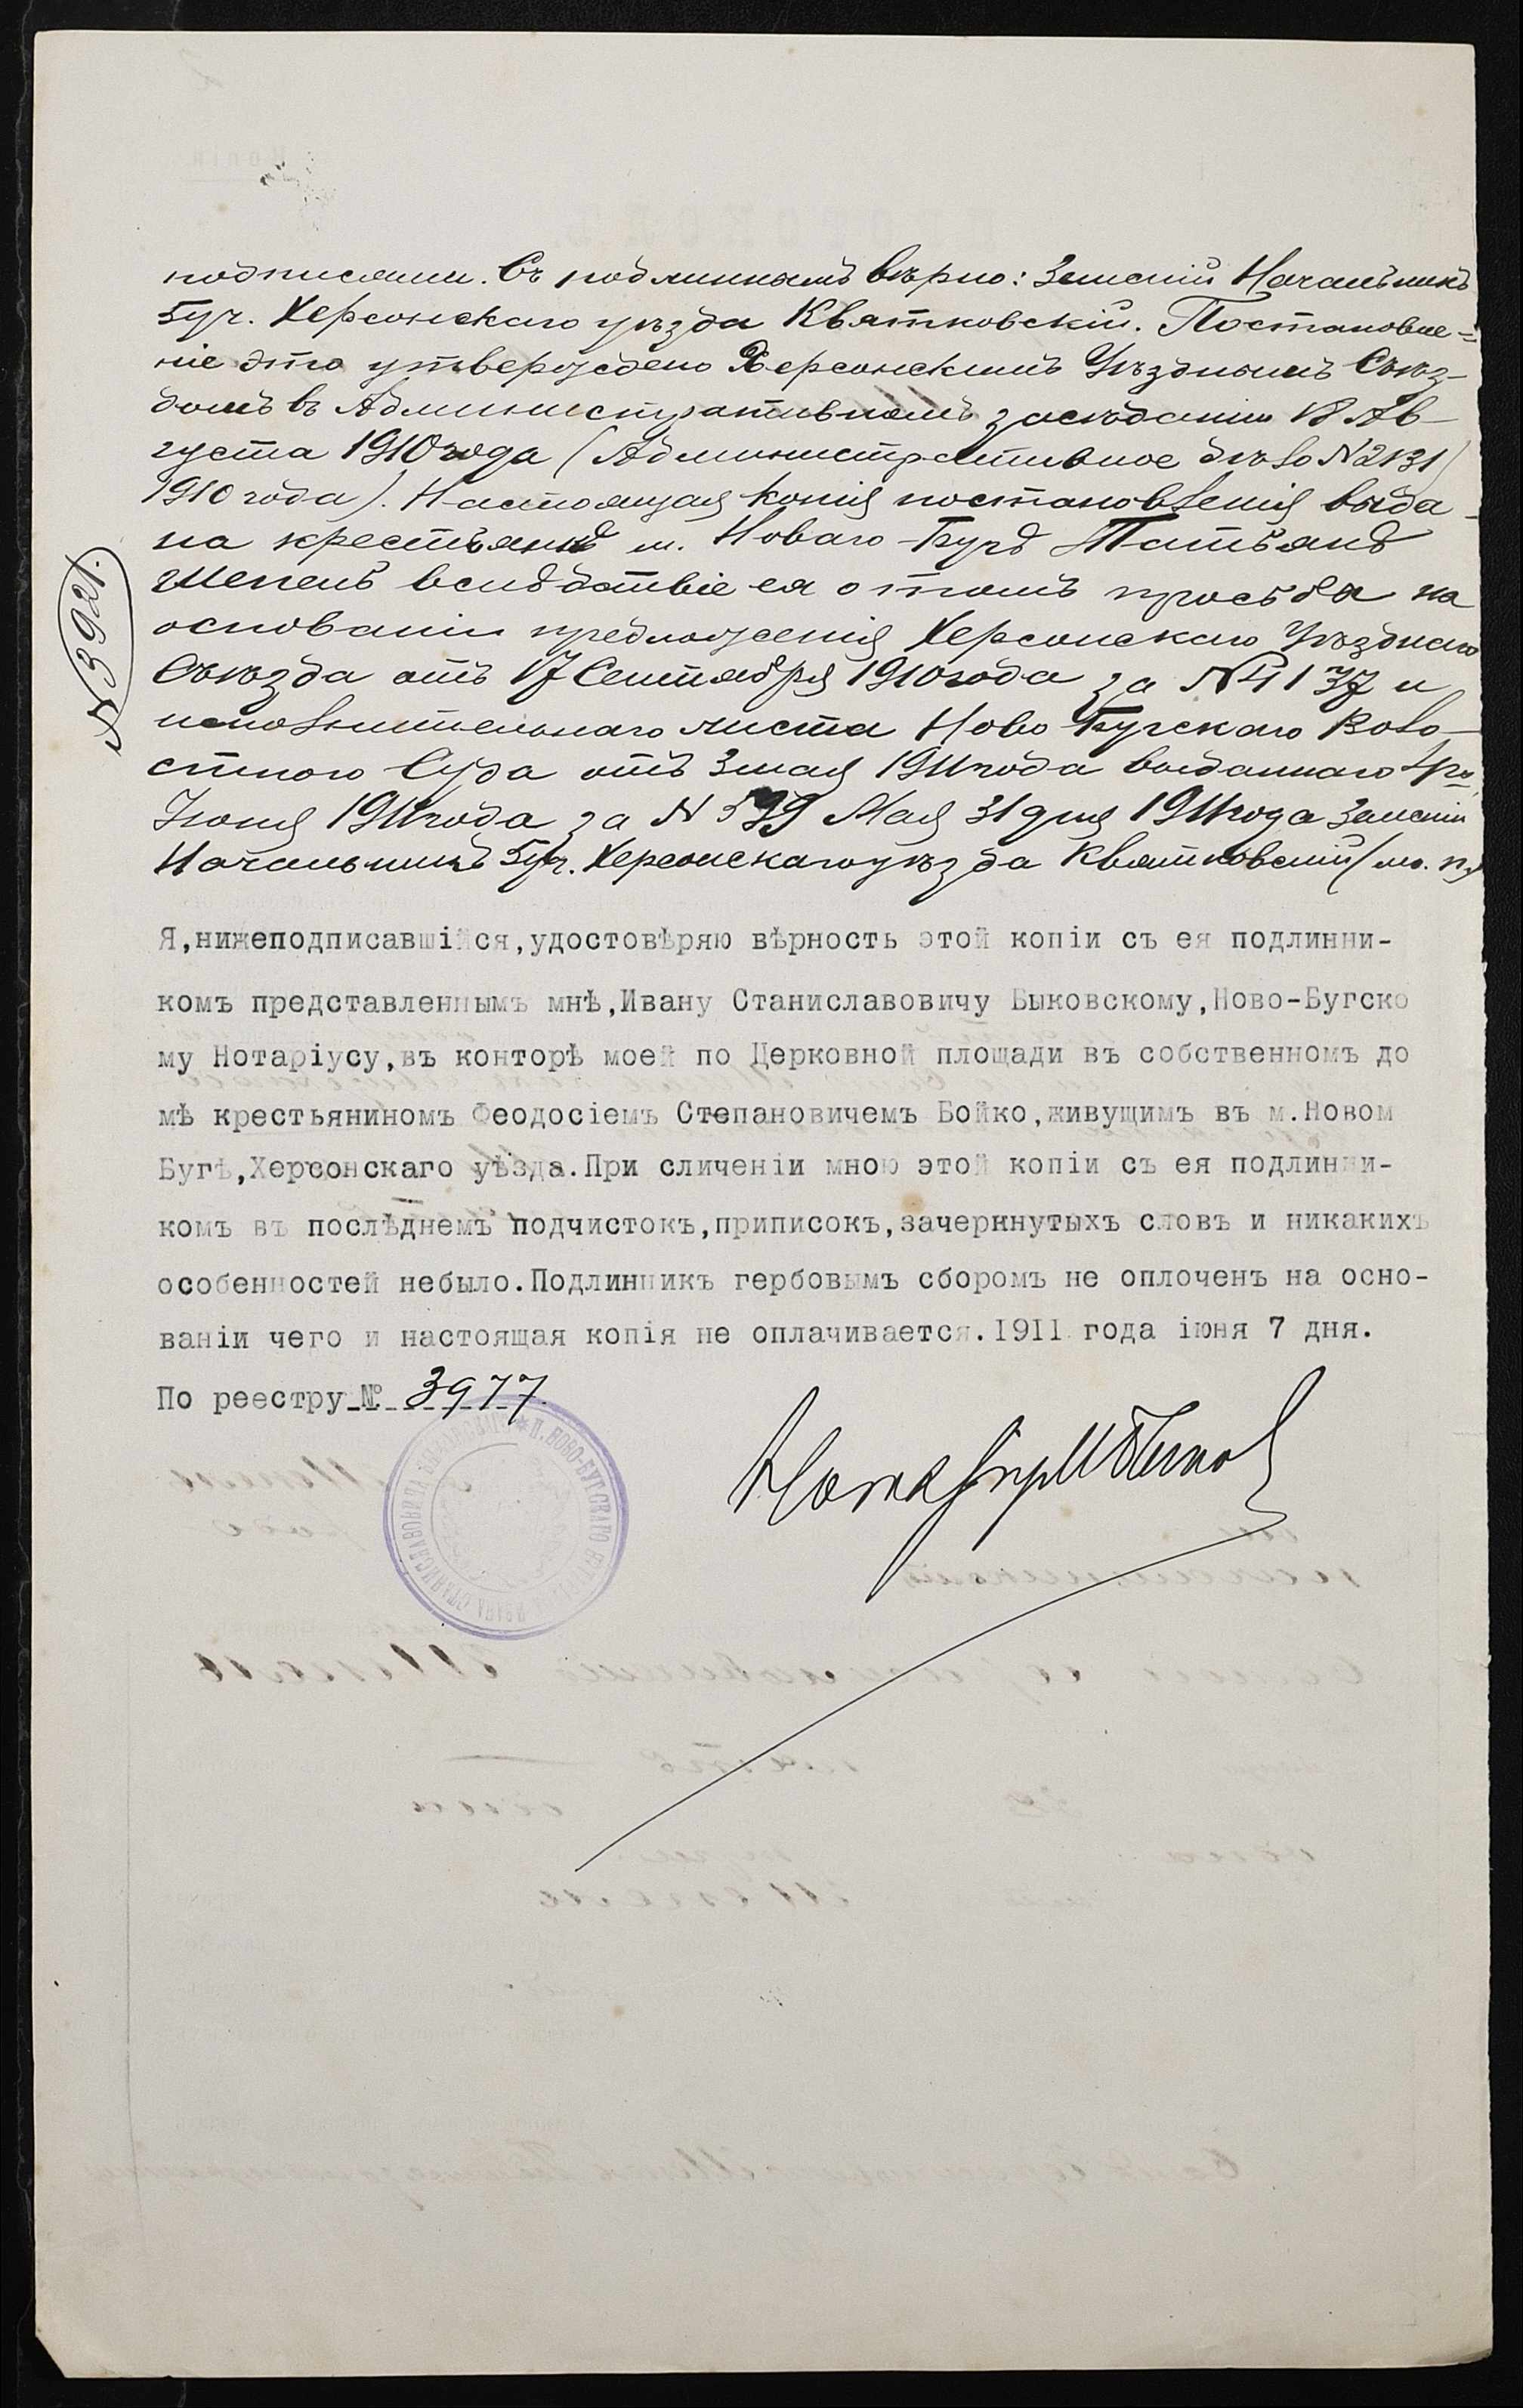 подписями. Съ подлиннымъ вѣрно: Земскій Начальникъ
5 уч. Херсонскаго уѣзда Квятковскій. Постановле=
ніе это утверждено Херсонскимъ Уѣзднымъ Съѣз-
домъ въ Административномъ засѣданіи 18 Ав-
густа 1910 года (Административное дѣло N 2131
1910 года). Настоящая копія постановленія выда-
на крестьянкѣ м. Новаго-Буга Татьянѣ
Шепель вслѣдствіе ея о томъ просьбы на
основаніи предложенія Херсонскаго Уѣзднаго
Съѣзда отъ 17 Сентября 1910 года за № 4137 и
исполнительнаго листа Ново Бугскаго Воло-
стного Суда отъ 3 мая 1911 года выданнаго
Іюня 1911 года за N 599 Мая 31 дня 1911 года Земскій
Начальникъ 5 уч. Херсонскаго уѣзда Квятковскій (м. п.)
№ 3921.
Я,нижеподписавшійся,удостовѣряю вѣрность этой копіи съ ея подлинни-
комъ представленнымъ мнѣ,Ивану Станиславовичу Быковскому,Ново-Бугско
му Нотаріусу,въ конторѣ моей по Церковной площади въ собственномъ до
мѣ крестьяниномъ Феодосіемъ Степановичемъ Бойко,живущимъ въ м.Новом
Бугѣ,Херсонскаго уѣзда.При сличеніи мною этой копіи съ ея подлинни-
комъ въ послѣднемъ подчистокъ,приписокъ,зачеркнутыхъ словъ и никакихъ
особенностей небыло.Подлинникъ гербовымъ сборомъ не оплоченъ на осно-
ваніи чего и настоящая копія не оплачивается.1911 года іюня 7 дня.
По реестру № 3977.
Н. НОВО-БУГСКАГО НОТАРІУСА ИВАНА СТАНИСЛАВОВИЧА БЫКОВСКАГО